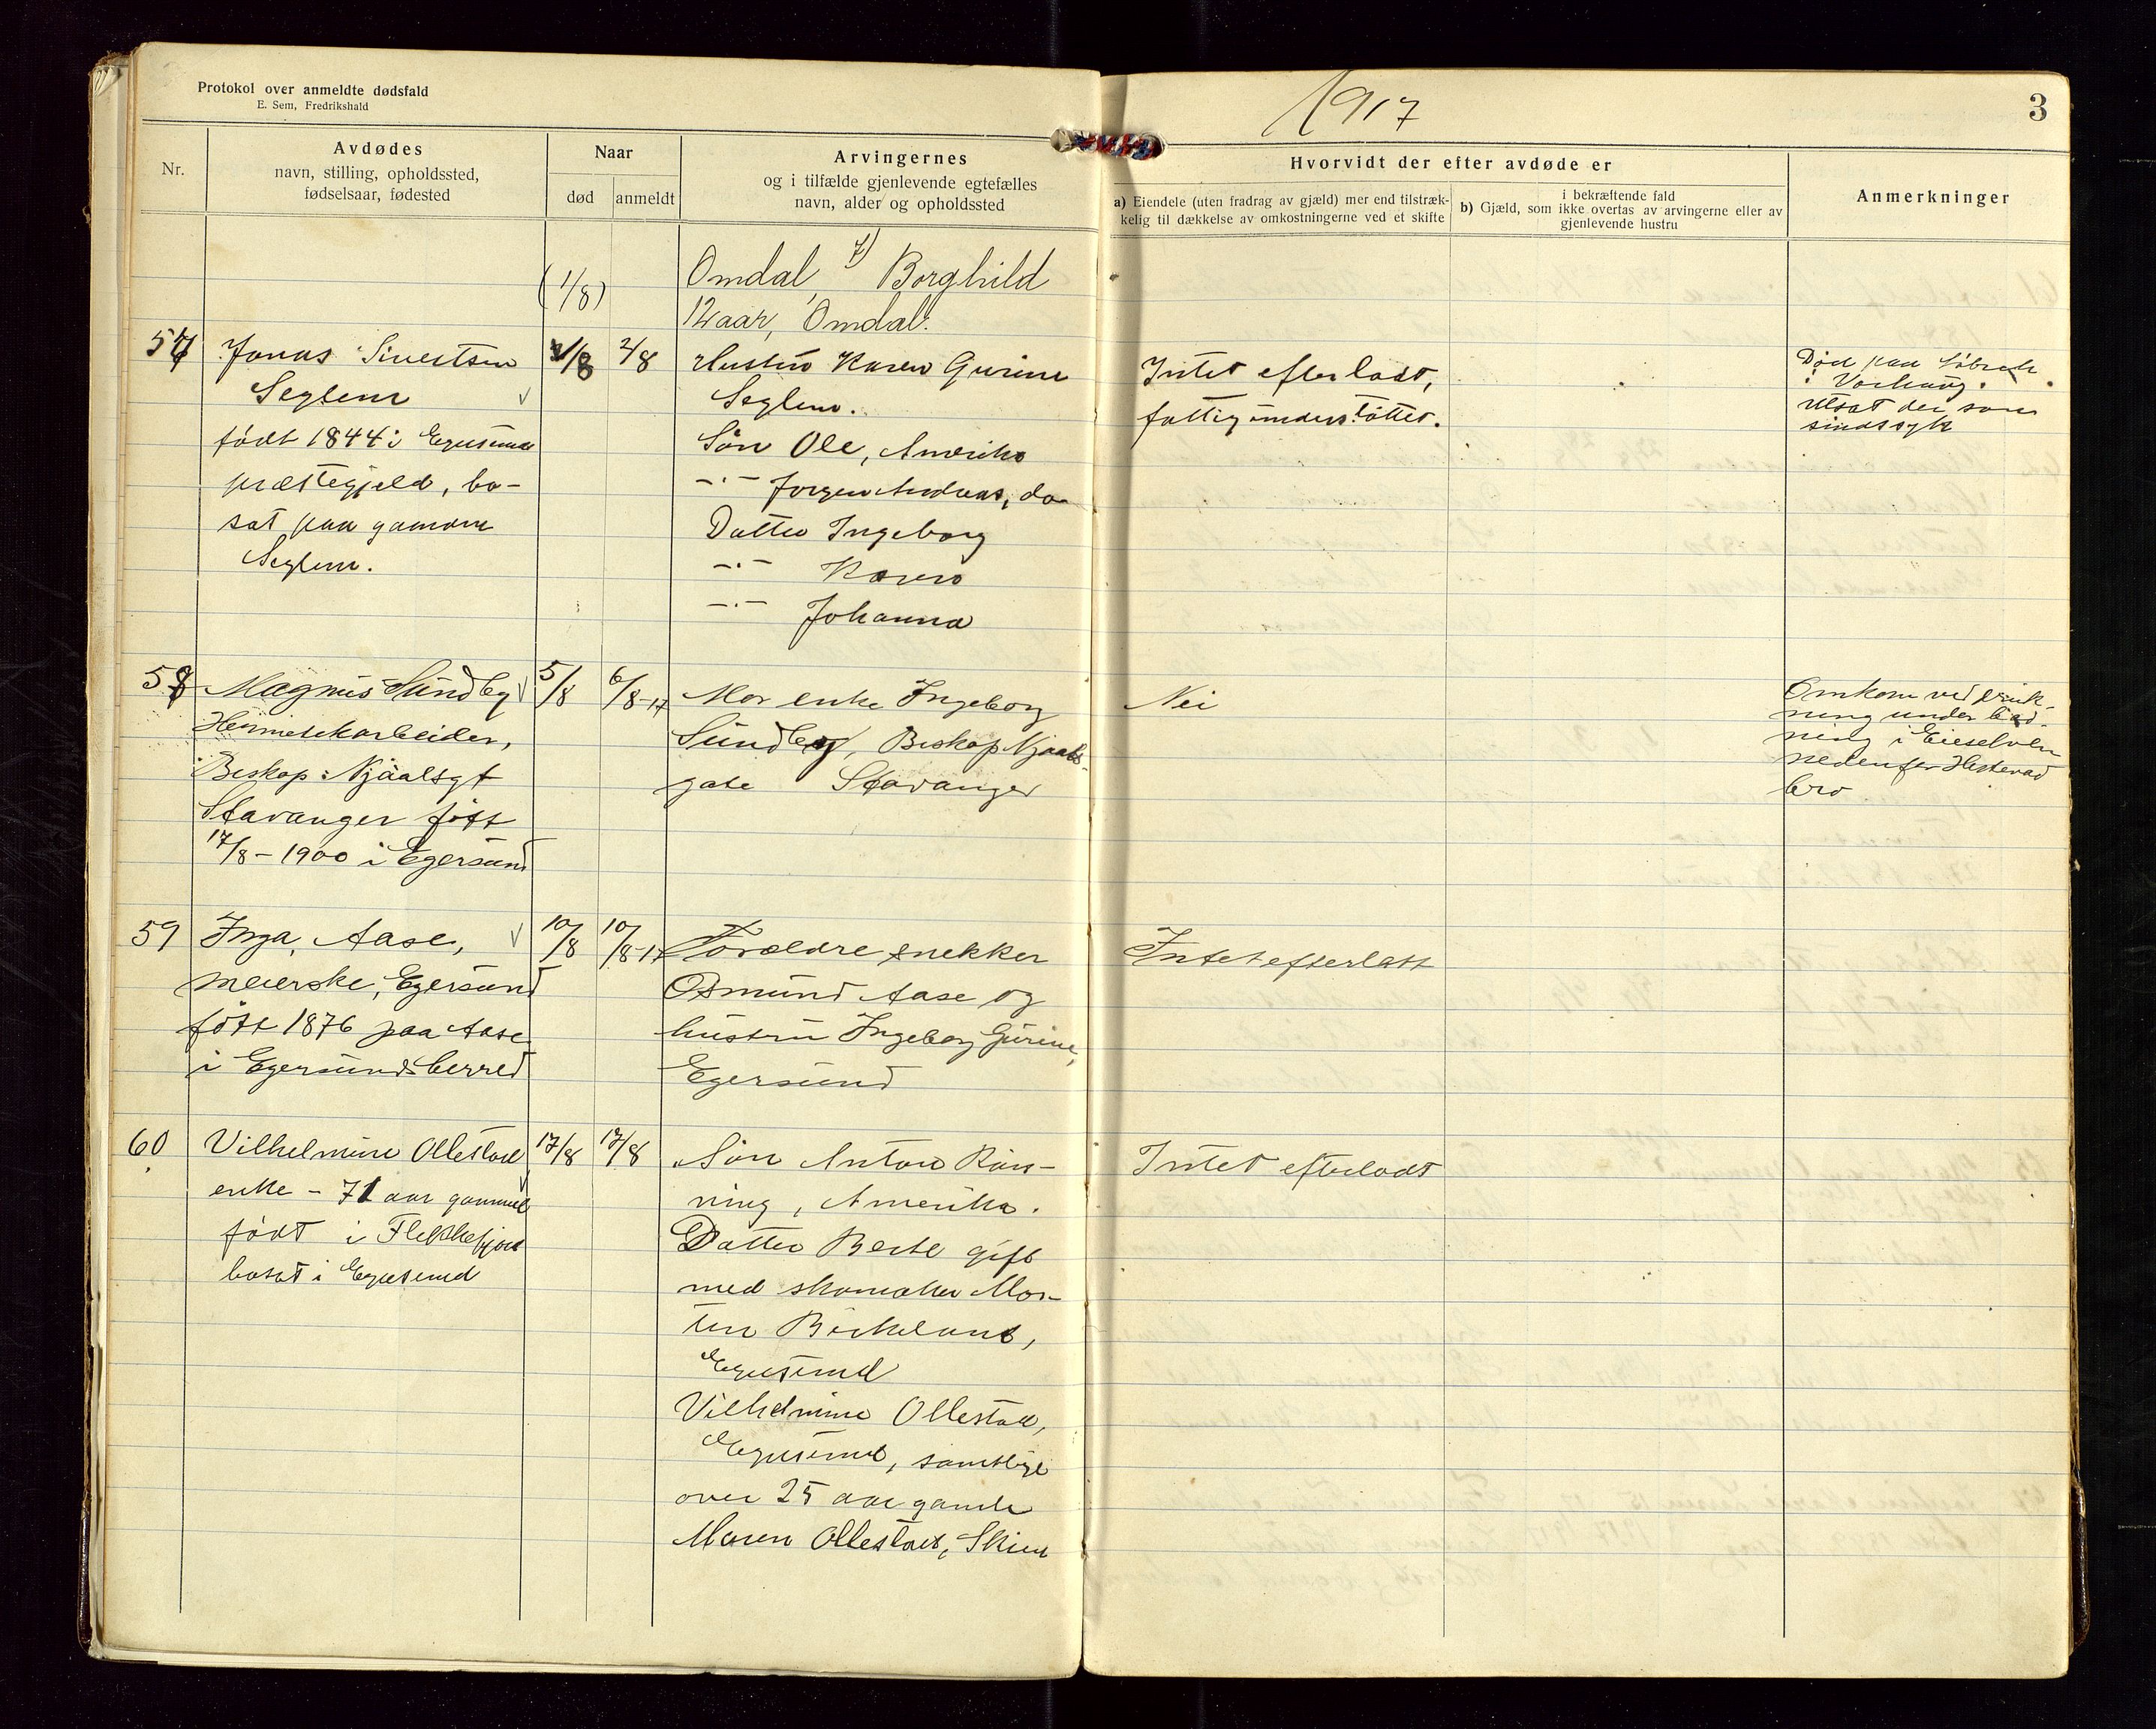 Protokol over anmeldte dødsfald
E. Sem, Fredrikshald
1917
3
Nr.
Avdødes
navn, stilling, opholdssted,
fødselsaar, fødested
Naar
død
anmeldt
Arvingernes
og i tilfælde gjenlevende egtefælles
navn, alder og opholdssted
Hvorvidt der efter avdøde er
a) Eiendele (uten fradrag av gjæld) mer end tilstræk-
kelig til dækkelse av omkostningerne ved et skifte
i bekræftende fald
b) Gjæld, som ikke overtas av arvingerne eller av
gjenlevende hustru
Anmerkninger
(1/8)
Omdal, 7) Borghild
12 aar, Omdal.
57
Jonas Sivertsen
Seglem
født 1844 i Egersund
præstegjeld, bo-
sat paa gaarden
Seglem.
1/8
2/8
Hustru Karen Gurine
Seglem.
Søn Ole, Amerika
-"- Jørgen Andreas, do
Datter Ingeborg
-"- Karen
-"- Johanna
Intet efterladt,
fattigunderstøttet.
Død paa
i Varhaug.
Utsat der som
sindssyk
58
Magnus Sundby
Hermetikarbeider,
Biskop Njaalsgt
Stavanger født
17/8 - 1900 i Egersund
5/8
6/8-17
Mor enke Ingeborg
Sundby, Biskop Njaals-
gate Stavanger
Nei
Omkom ved druk-
ning under bad-
ning i Eieselven
nedenfor Hestvad
bro
59
Inga Aase,
meierske, Egersund
født 1876 paa Aase
i Egersunds herred
10/8
10/8-17
Forældre snekker
Osmund Aase og
hustru Ingeborg Gurine,
Egersund
Intet efterlatt
60
Vilhelmine Ollestad
enke - 71 aar gammel
født i Flekkefjord
bosat i Egersund
17/8
17/8
Søn Anton Røn-
ning, Amerika.
Datter Berte gift
med skomaker Mor-
ten Birkeland,
Egersund
Vilhelmine Ollestad,
Egersund, samtlige
over 25 aar gamle
Maren Ollestad,
Intet efterladt